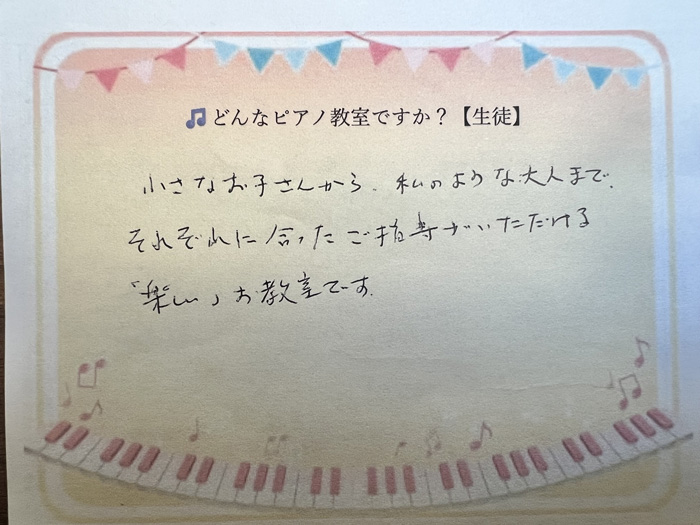 🎵どんなピアノ教室ですか？【生徒】
小さなお子さんから、私のような大人まで、
それぞれに合ったご指導がいただける
“楽しい”お教室です。